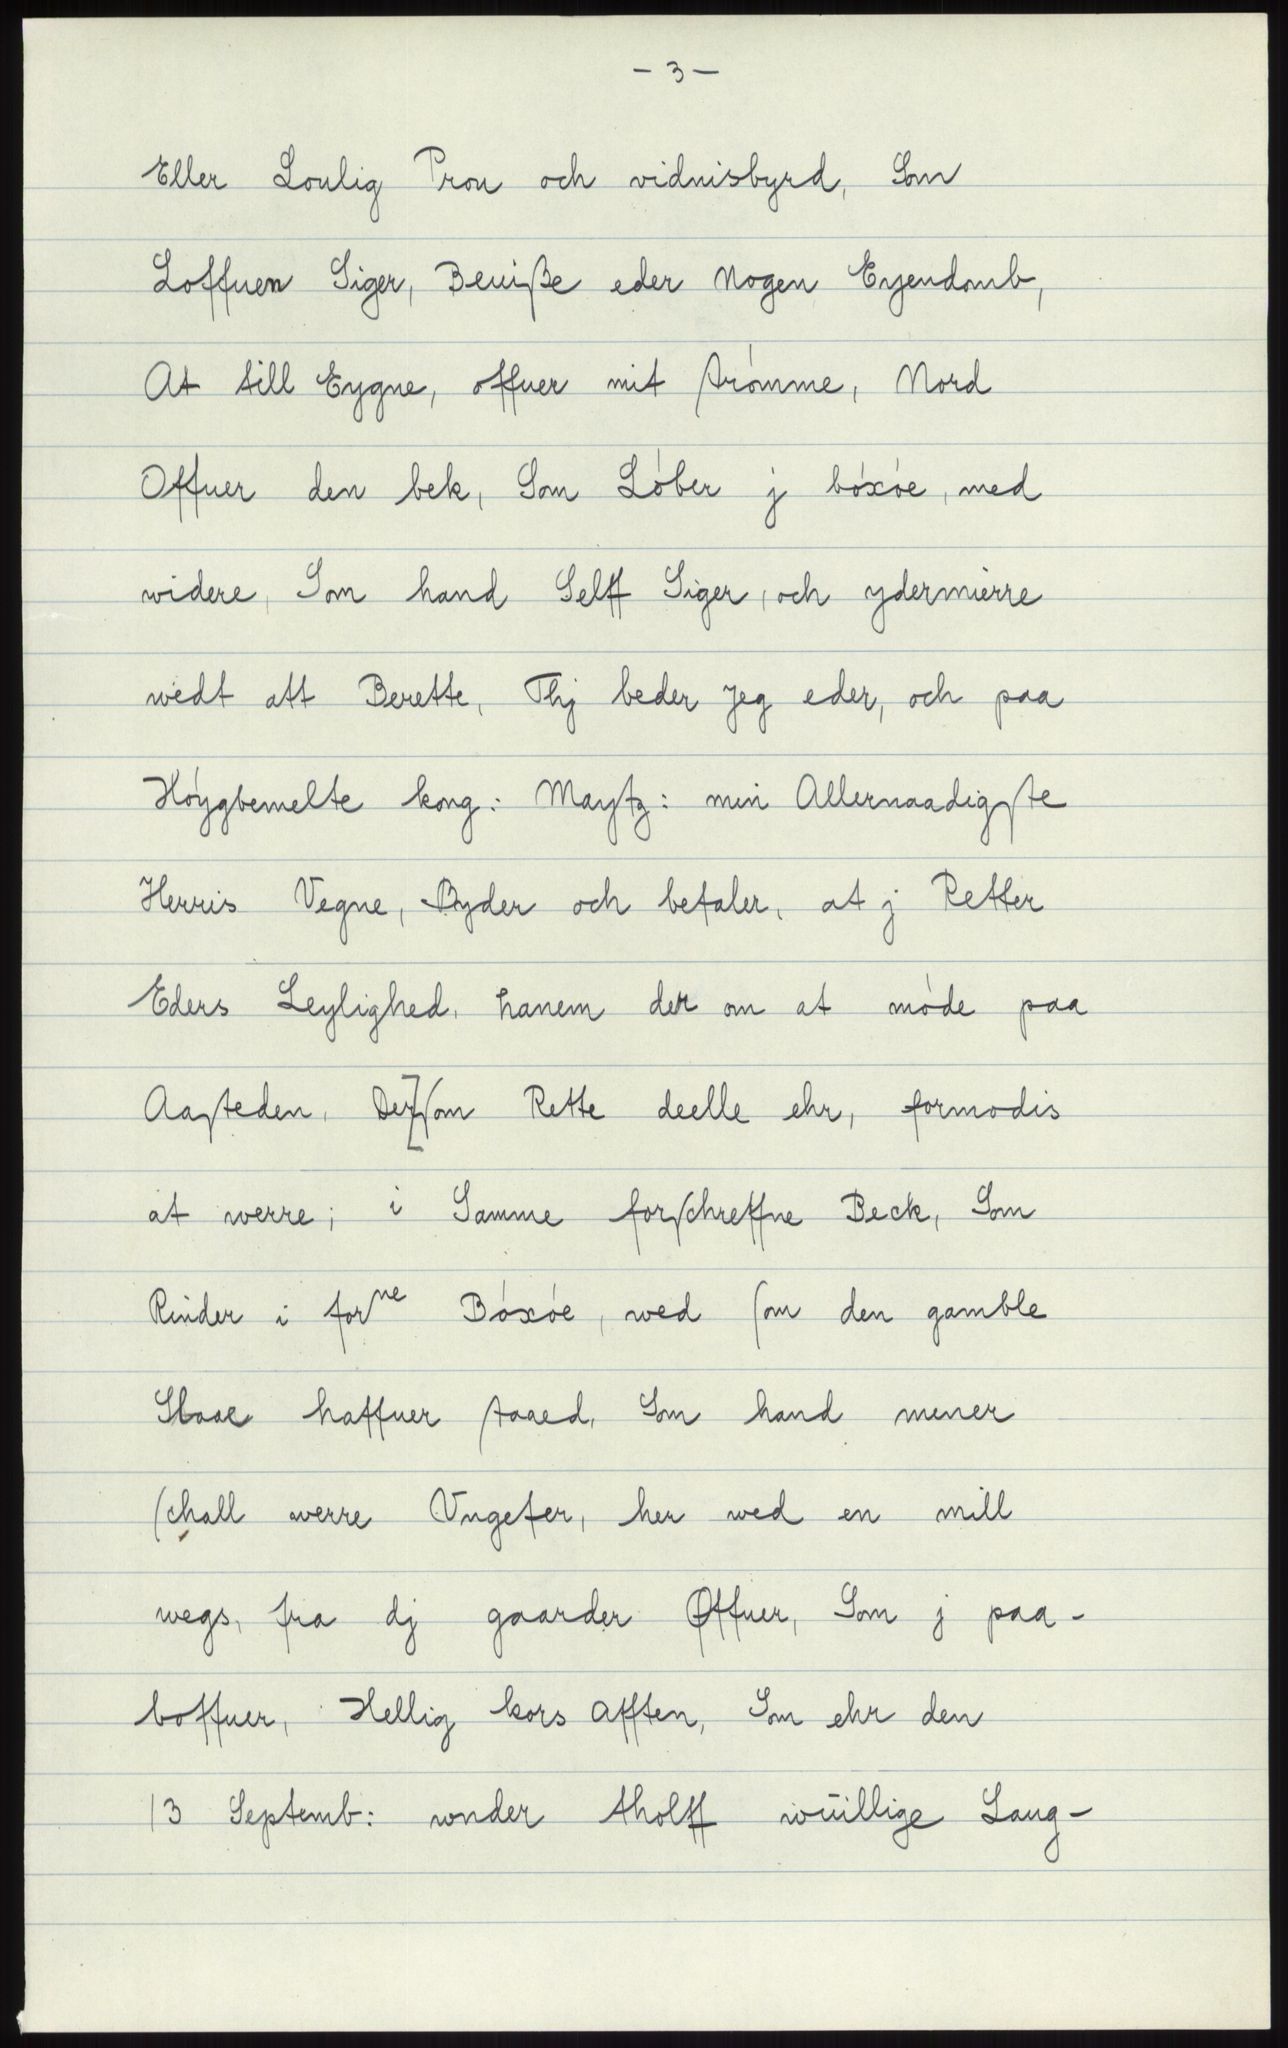 - 3 -
Eller Loulig Prou och vidnisbyrd, Som
Loffuen Siger, Beuiße eder Nogen Eyendomb,
At till Eygne, offuer mit strómme, Nord
Offuer den bek, Som Lóber j bóxóe, med
widere, Som hand Selff Siger, och ydermierre
wedt att Berette, Thj beder Jeg eder, och paa
Hóygbemelte kong: Maytz: min Allernaadigste
Herris Vegne, Byder och befaler, at j Retter
Eders Leylighed, hanem der om at móde paa
Aasteden, Der som Rette deelle ehr, formodis
at werre; i Samme forschreffne Beck, Som
Rinder i forne Bóxóe, wed som den gamble
Slaae haffuer staaed, Som hand mener
schall werre Vngefer, her wed en mill
wegs, fra dj gaarder Øffuer, Som j paa-
boffuer, Hellig kors Afften, Som ehr den
13 Septemb: wnder tholff wuillige Laug-